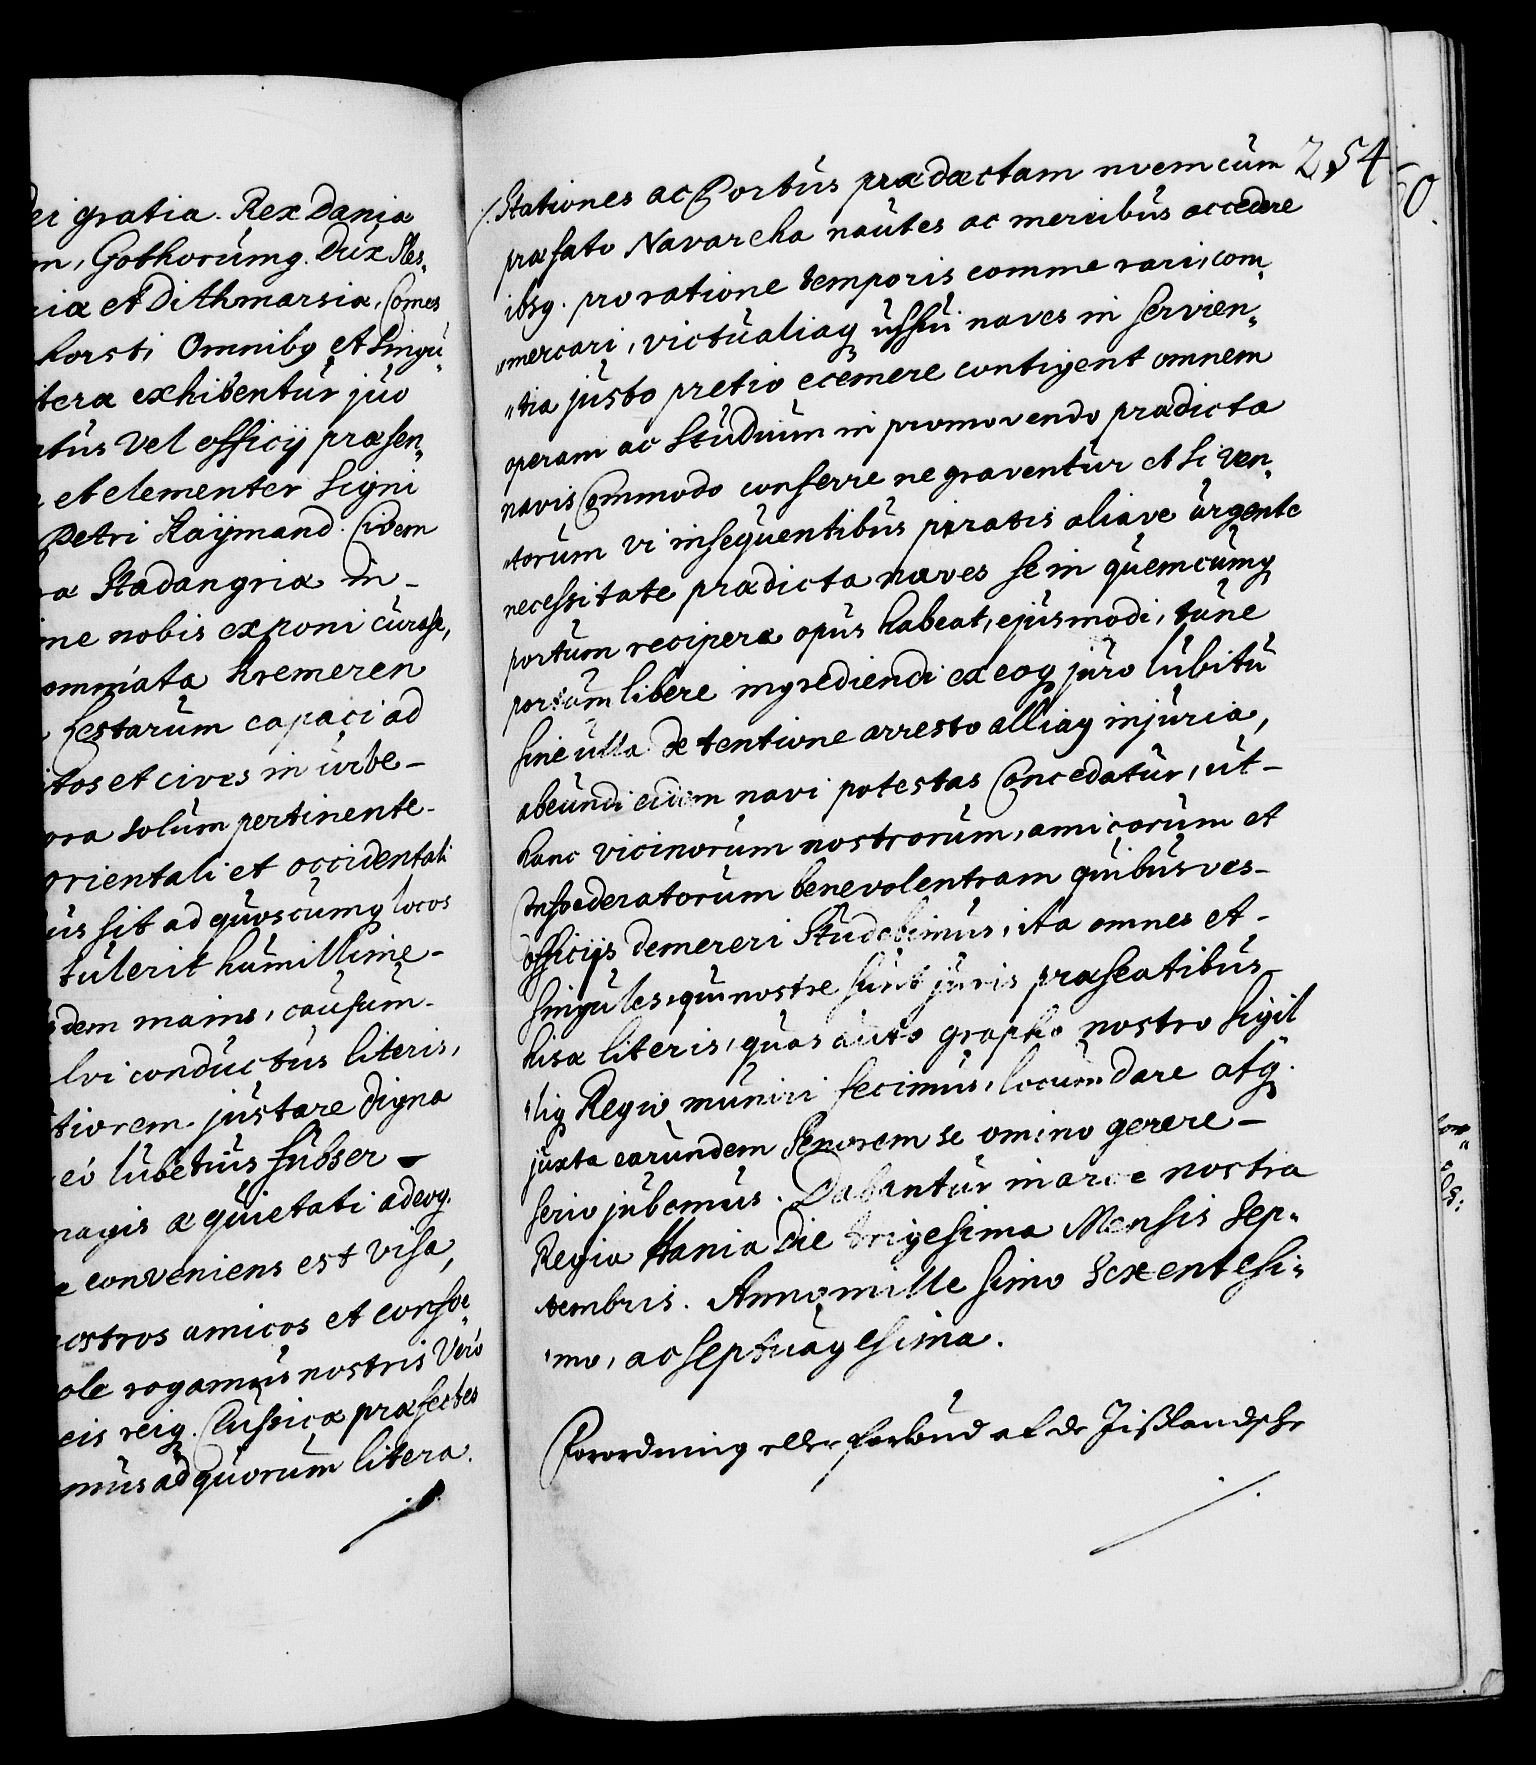 ei gratia. Rex Dania
n, Gothorumq. Dux Sles¬
ria et Dithmarsia, Comes
horsti Omnibq et Singu¬
tera exhibentur juo
atus vel officij præsen¬
et elementer Signi
Petri Raijmand. Cidem
a Stadangria in-
me nobis exponi curasse,
ommiata Kremeren
festarum capaci ad
tos et cives in urbe-
ora solum pertinente-
orientali et occidentali
us sit ad quoscumq locos
tulerit humillime-
dem mains, causum-
lvi conductus literis,
tiorem justare digna
ei lubetius subser-
magis æquietati adeoq.
e conveniens est visa,
nostros amicos et confoe¬
ole rogamus nostris vero
eis reiq. Classica præfectes
mus ad quorum litera.
254
0.
/. Stationes ac Portus prædactam nvem cum
præfato Navarcha nautes ac mercibus accedere
ibsq. pro ratione temporis comme rari, com¬
mercari, victualiaq ussui naves in servien¬
tia justo pretio ecemere contigent omnem
operam ac Studium in promovendo prædicta
navis Commodo conferre ne graventur et si ven¬
torum vi insequentibus piratis aliave urgente
necessitate prædicta naves se in quemcumq
portum recipera opus habeat, ejusmodi, tune
portum libere ingrediendi ex eoq juro lubitu
sine ulla de tentione arresto alliaq injuria,
abeundi eidem navi potestas Concedatur, ut-
hanc vicinorum nostrorum, amicorum et
Confoederatorum benevolentram quibusves-
officijs demereri Studebimus, ita omnes et-
singules, qui nostre sunt juris præseatibus
hisa literis, quas auto grapho nostro sigil
liq Regio muniri fecimus, locum dare atq.
juxta earundem Senorem se omino gerere-
serio jubemus. Dabantur in arce nostra
Regia Hania die trigesima Mensis Sep¬
tembris. Anno mille simo Sexentesi¬
mo, ac septuagesima.
Forordning eller forbud at de Jißlandsche